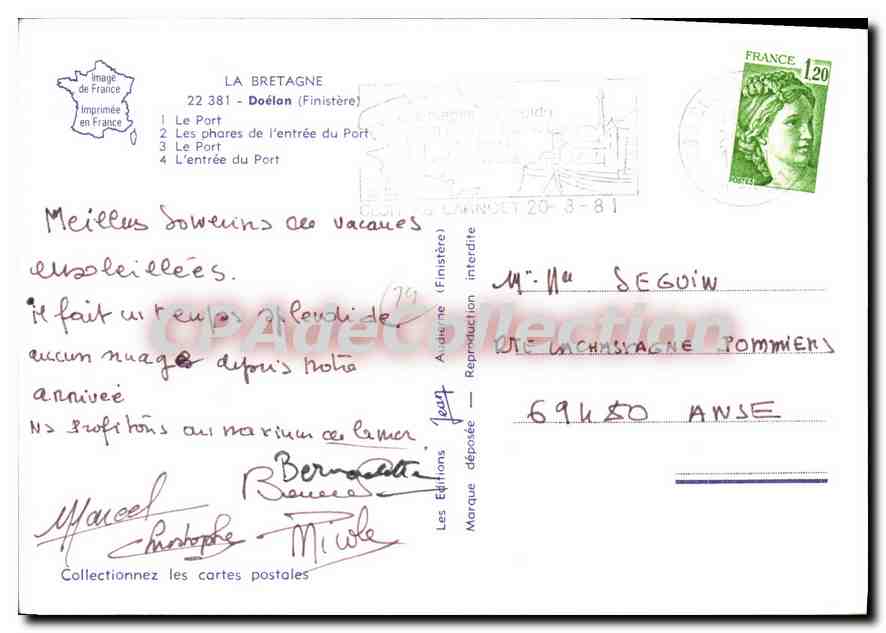 Image
de France
Imprimée
en France
LA BRETAGNE
22 381 - Doélan (Finistère)
1 Le Port
2 Les phares de l'entrée du Port
3 Le Port
4 L'entrée du Port
FRANCE
1,20
POSTES
20-8-81
Meilleurs Souvenirs de vacances
ensoleillées.
il fait un temps splendide
aucun nuage depuis notre
arrivée
Ns profitons au maximum de la mer
Bernadette
Marcel
Christophe
Nicole
Collectionnez les cartes postales
Les Editions Jean Audierne (Finistère)
Marque déposée — Reproduction interdite
79
Mr. Me SEGUIN
RTE LACHASSAGNE POMMIERS
69480 ANSE
CPAdeCollection